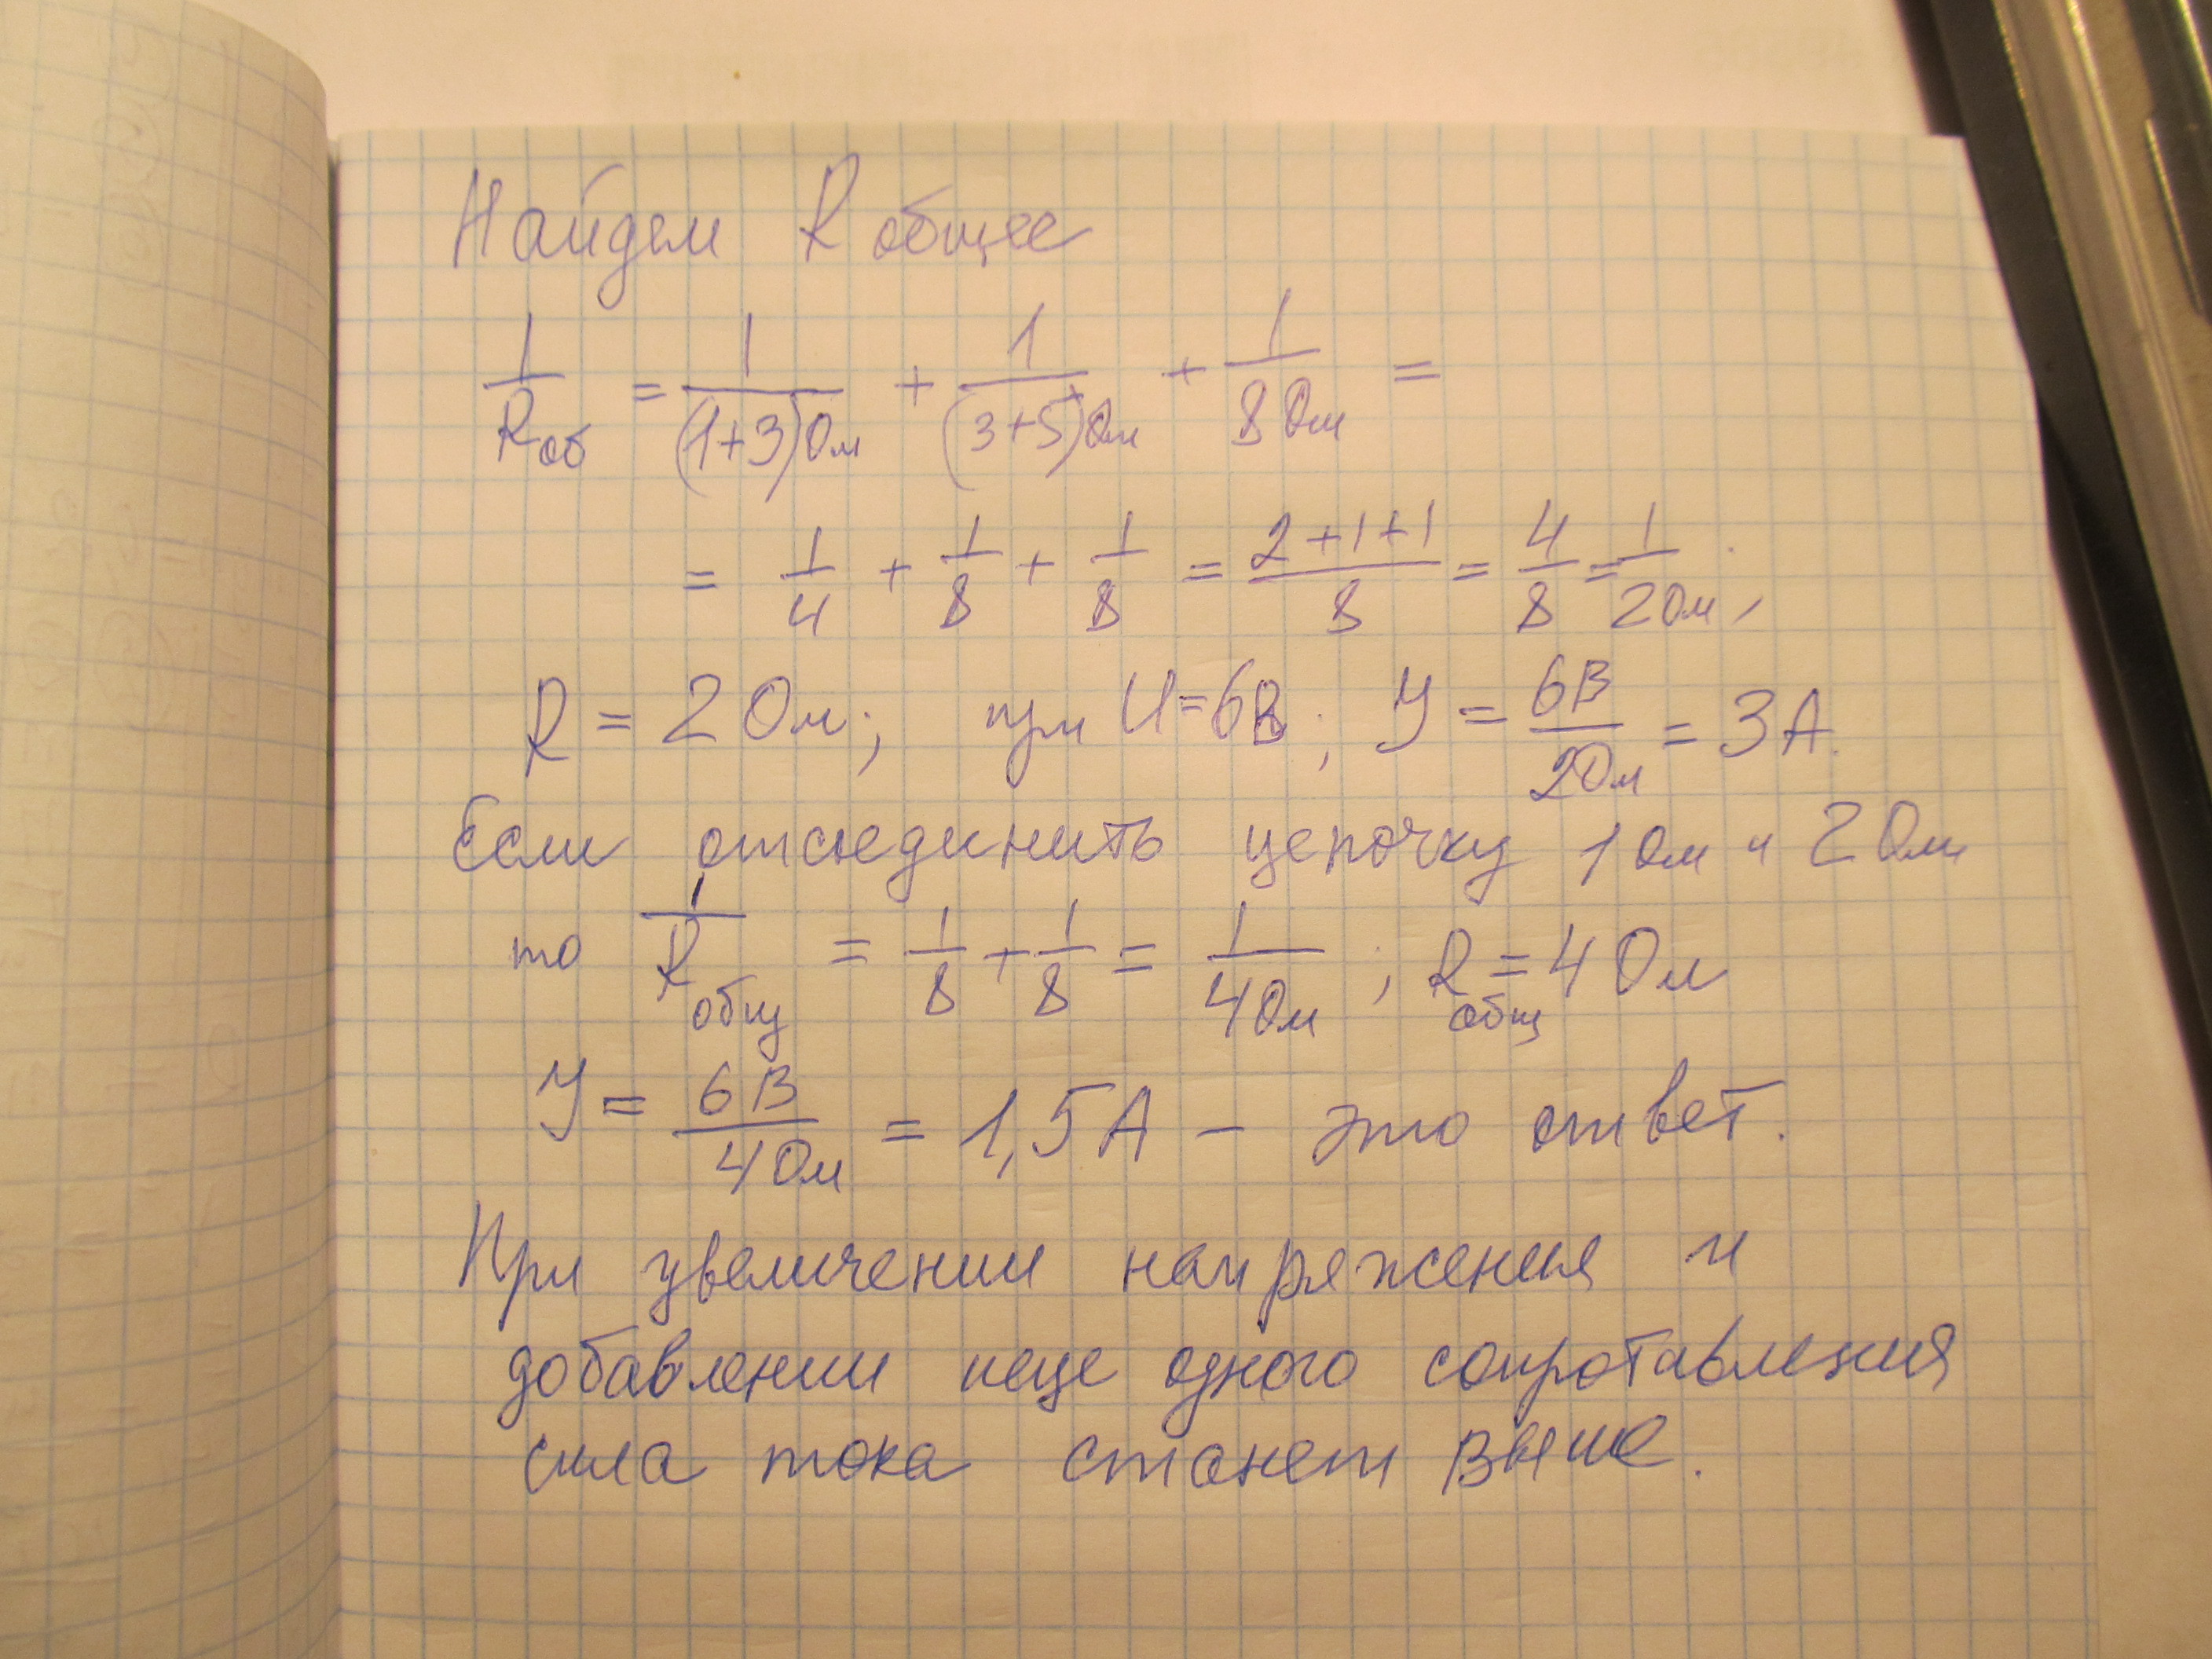 Найдем R общее
1/Rоб = 1/(1+3)Ом + 1/(3+5)Ом + 1/8 Ом =
= 1/4 + 1/8 + 1/8 = 2+1+1/8 = 4/8 = 1/2Ом,
R = 2 Ом; при U=6В; У = 6В/2Ом = 3А.
Если отсоединить цепочку 1 Ом и 2 Ом
то 1/Rобщ = 1/8 + 1/8 = 1/4Ом ; Rобщ = 4 Ом
У = 6В/4Ом = 1,5А – это ответ.
При увеличении напряжения и
добавлении еще одного сопротавления
сила тока станет выше.